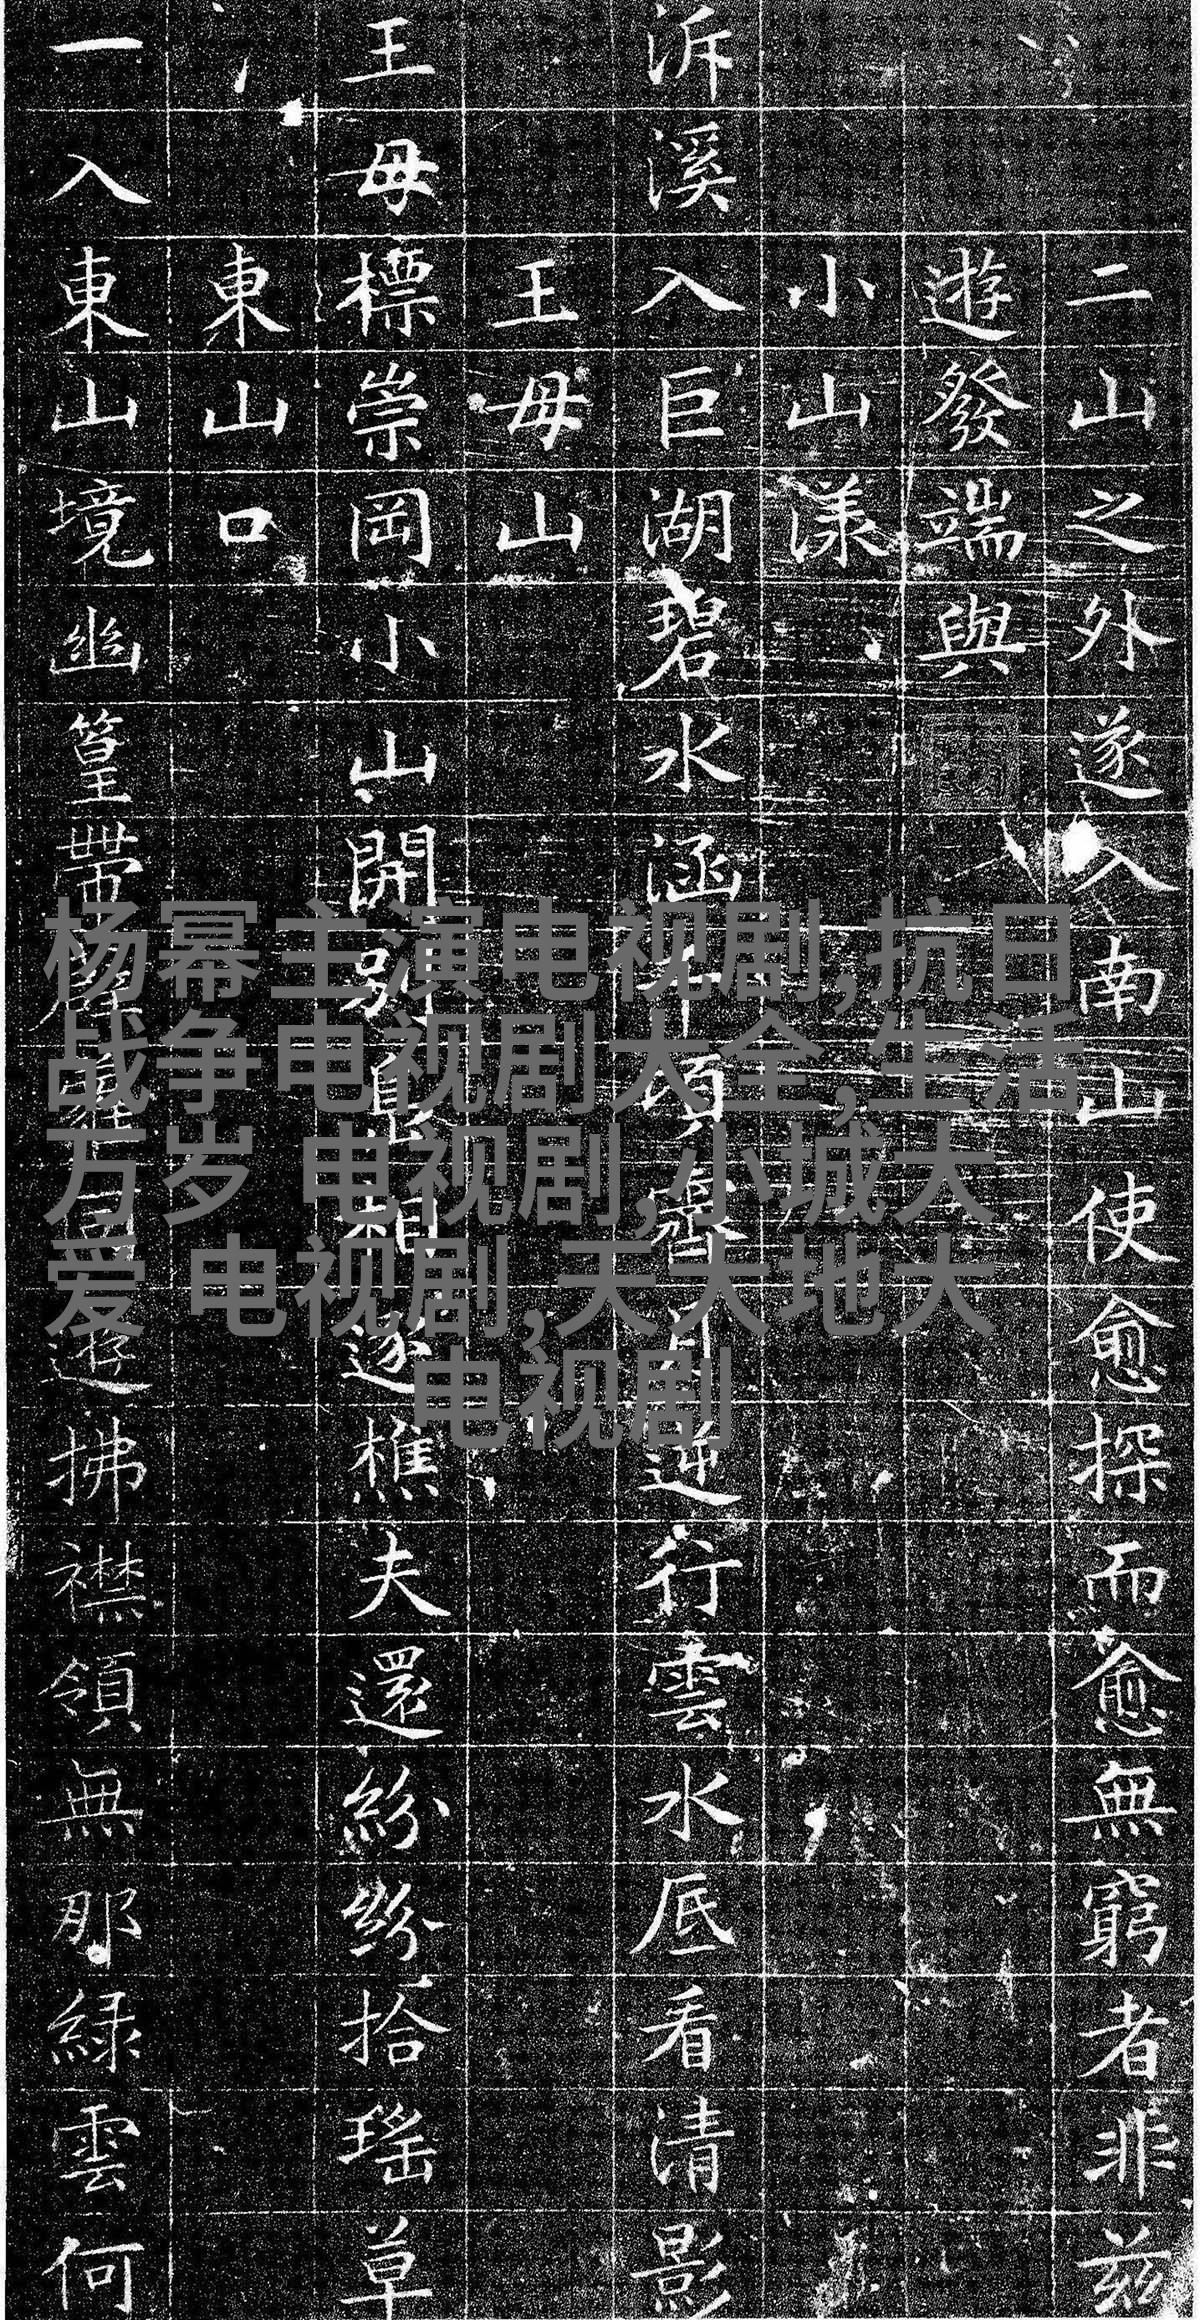 二山之外遂入南山使愈探而愈無窮者非茲
遊發端與
小山漾
泝溪入巨湖碧水涵千頃月逆行雲水底看清影
王母山
王母標崇岡小山開別相逐樵夫還紛紛拾瑤草
東山口
一入東山境幽篁帶遊拂襟領無那綠雲何
杨幂主演电视剧,抗日
战争 电视剧大全,生活
万岁 电视剧,小城大
爱 电视剧,天大地大
电视剧